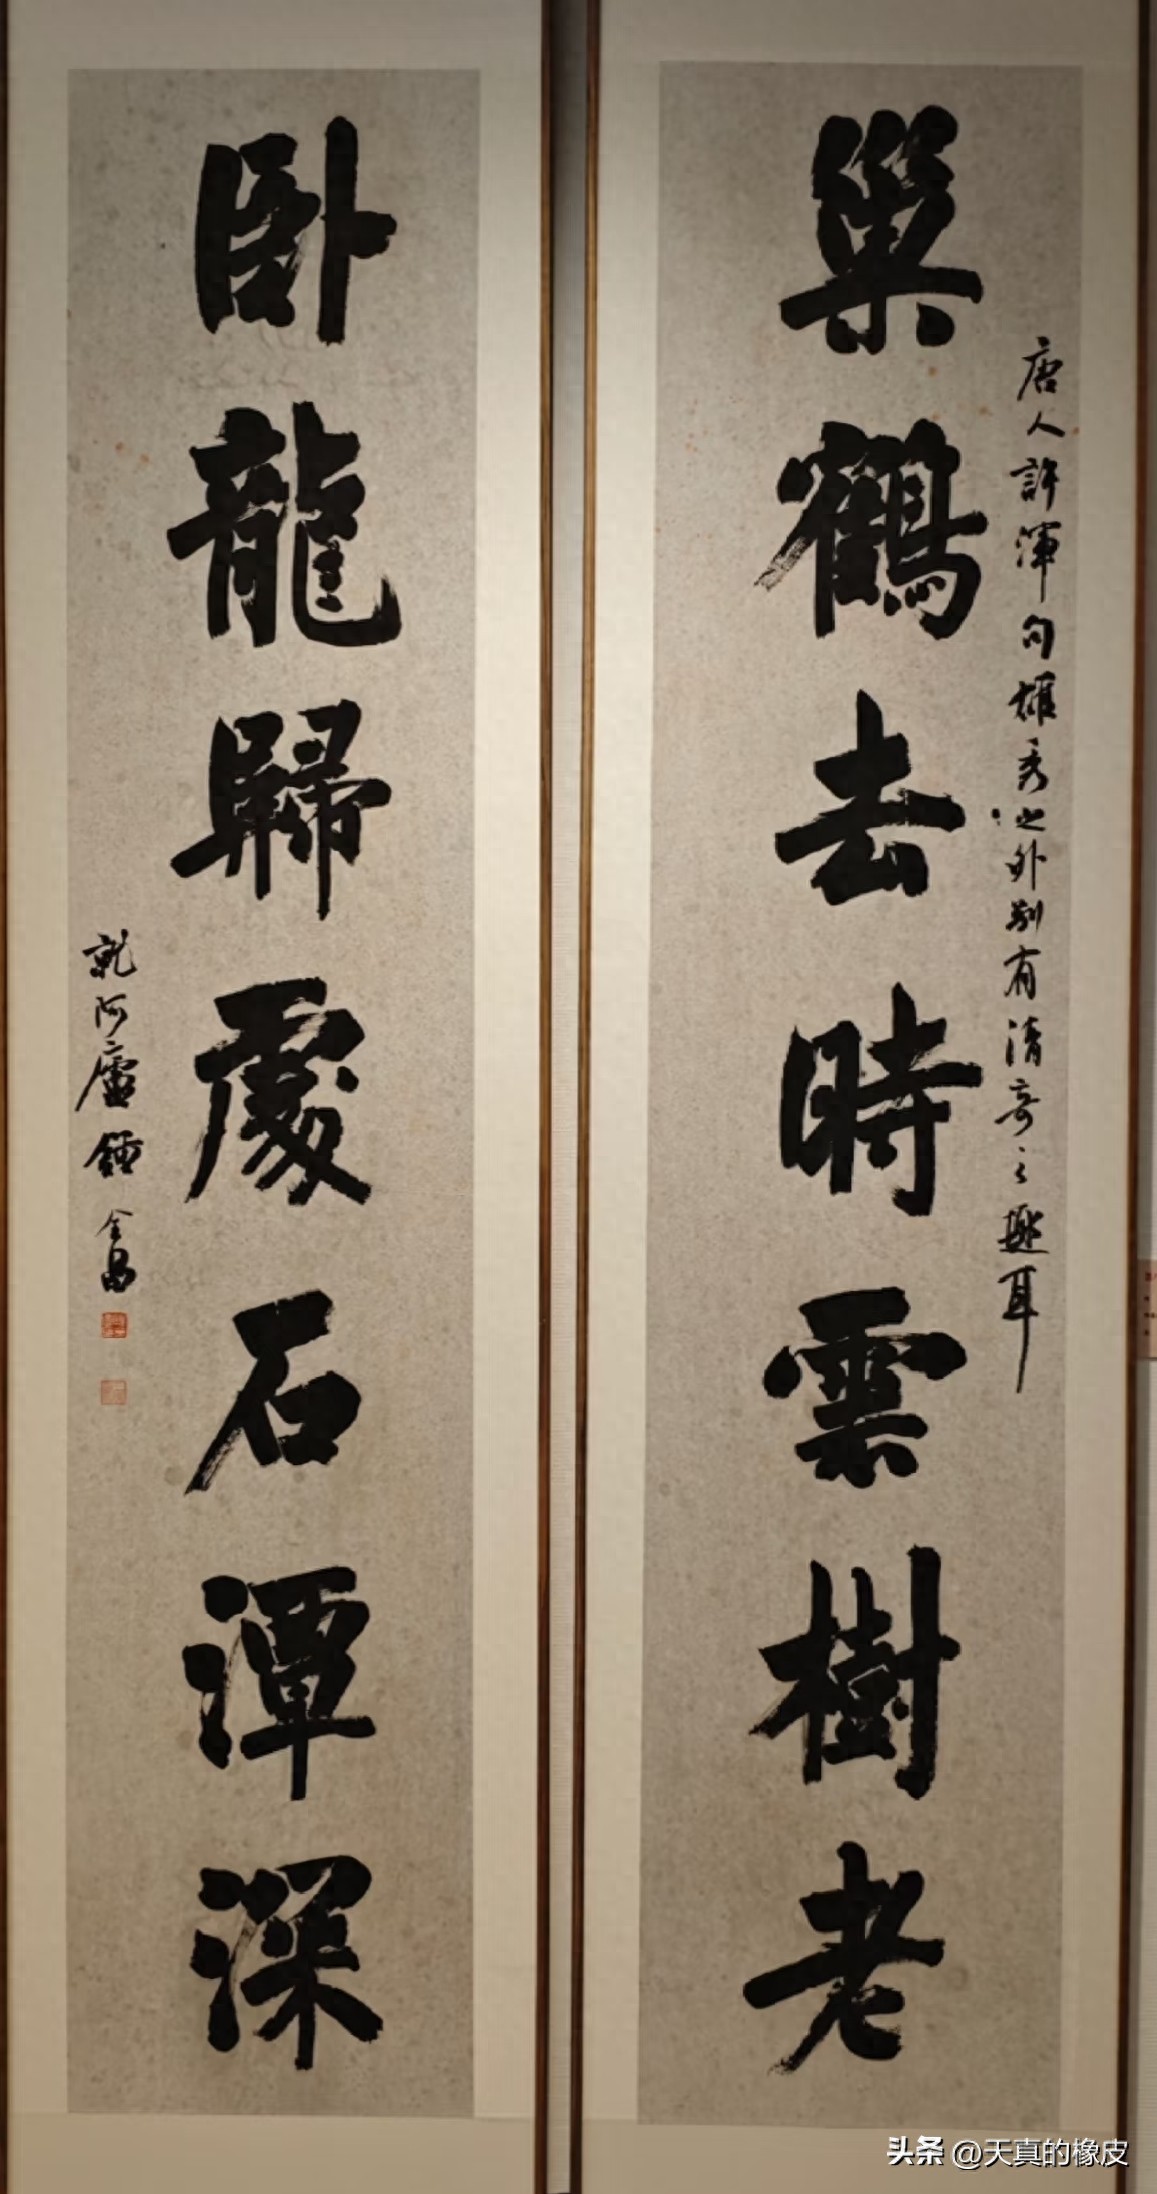 巢鶴去時雲樹老
唐人許渾句雄秀之外別有清奇之趣耳
卧龍歸處石潭深
阿廬鍾金昌
头条 @天真的橡皮